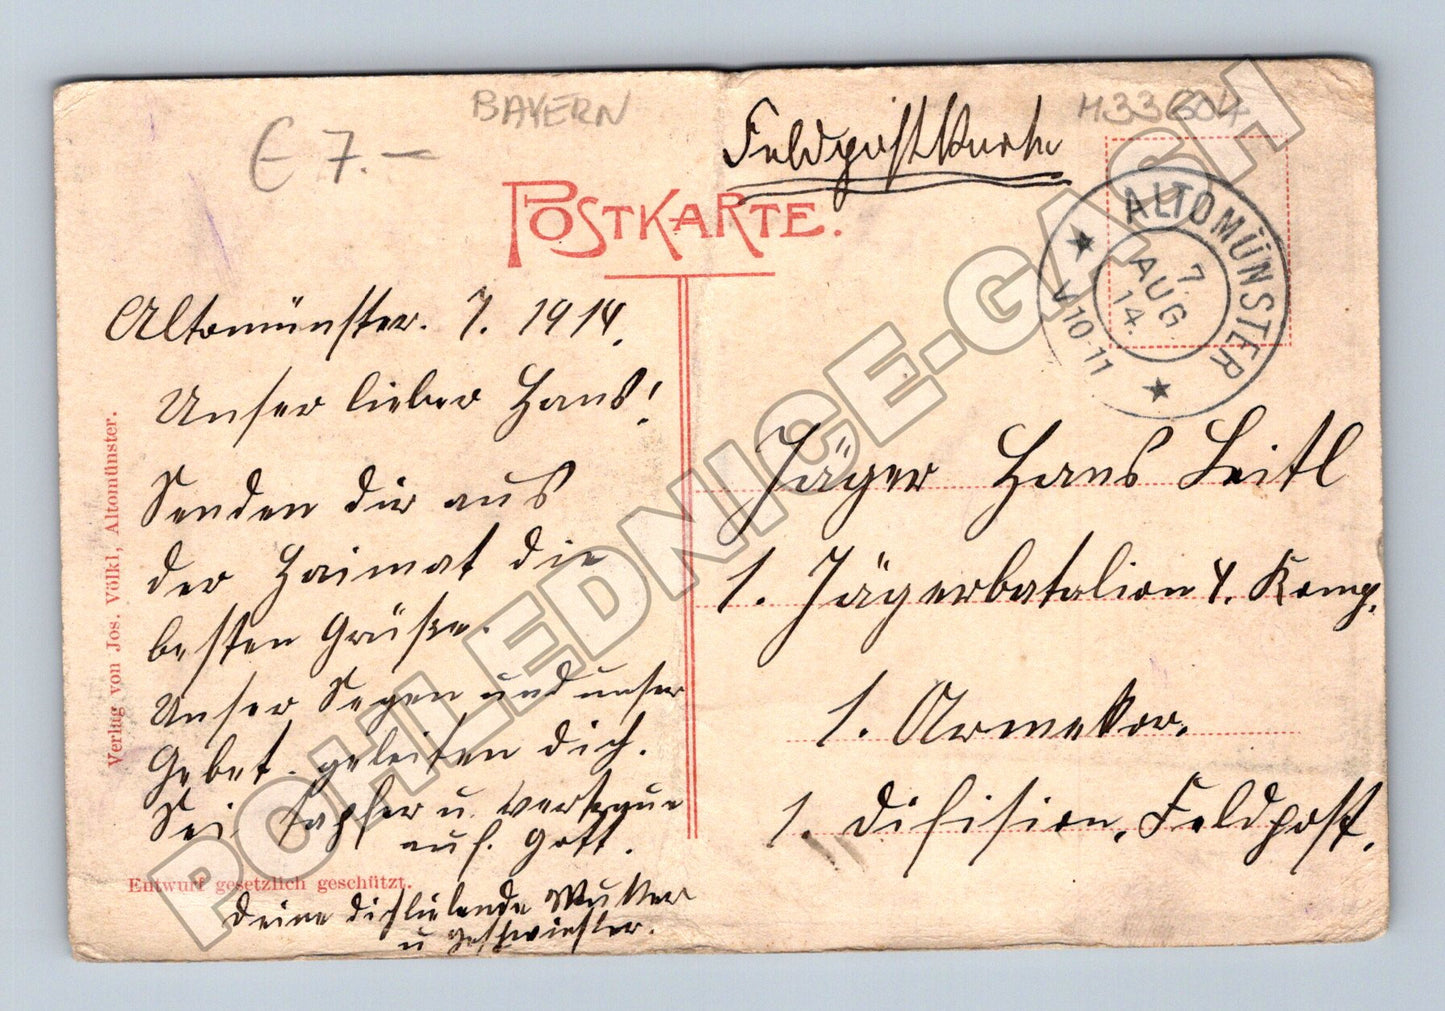 BAYERN
M33604
€ 7.—
Feldpostkarte
POSTKARTE.
ALTOMÜNSTER
7.
AUG.
14.
V10-11
Altomünster. 7. 1914.
Unser lieber Hans!
Senden dir aus
der Haimat die
besten Grüße.
Unser Segen und unser
Gebet geleiten dich.
Sei tapfer u. vertraue
auf. Gott.
Deine dichliebende Mutter
u geschwister.
Jäger Hans Leitl
1. Jägerbatalion 4. Komp.
1. Armekor.
1. Difision. Feldpost.
Verlag von Jos. Völkl, Altomünster.
Entwurf gesetzlich geschützt.
POHLEDNICE-GASH